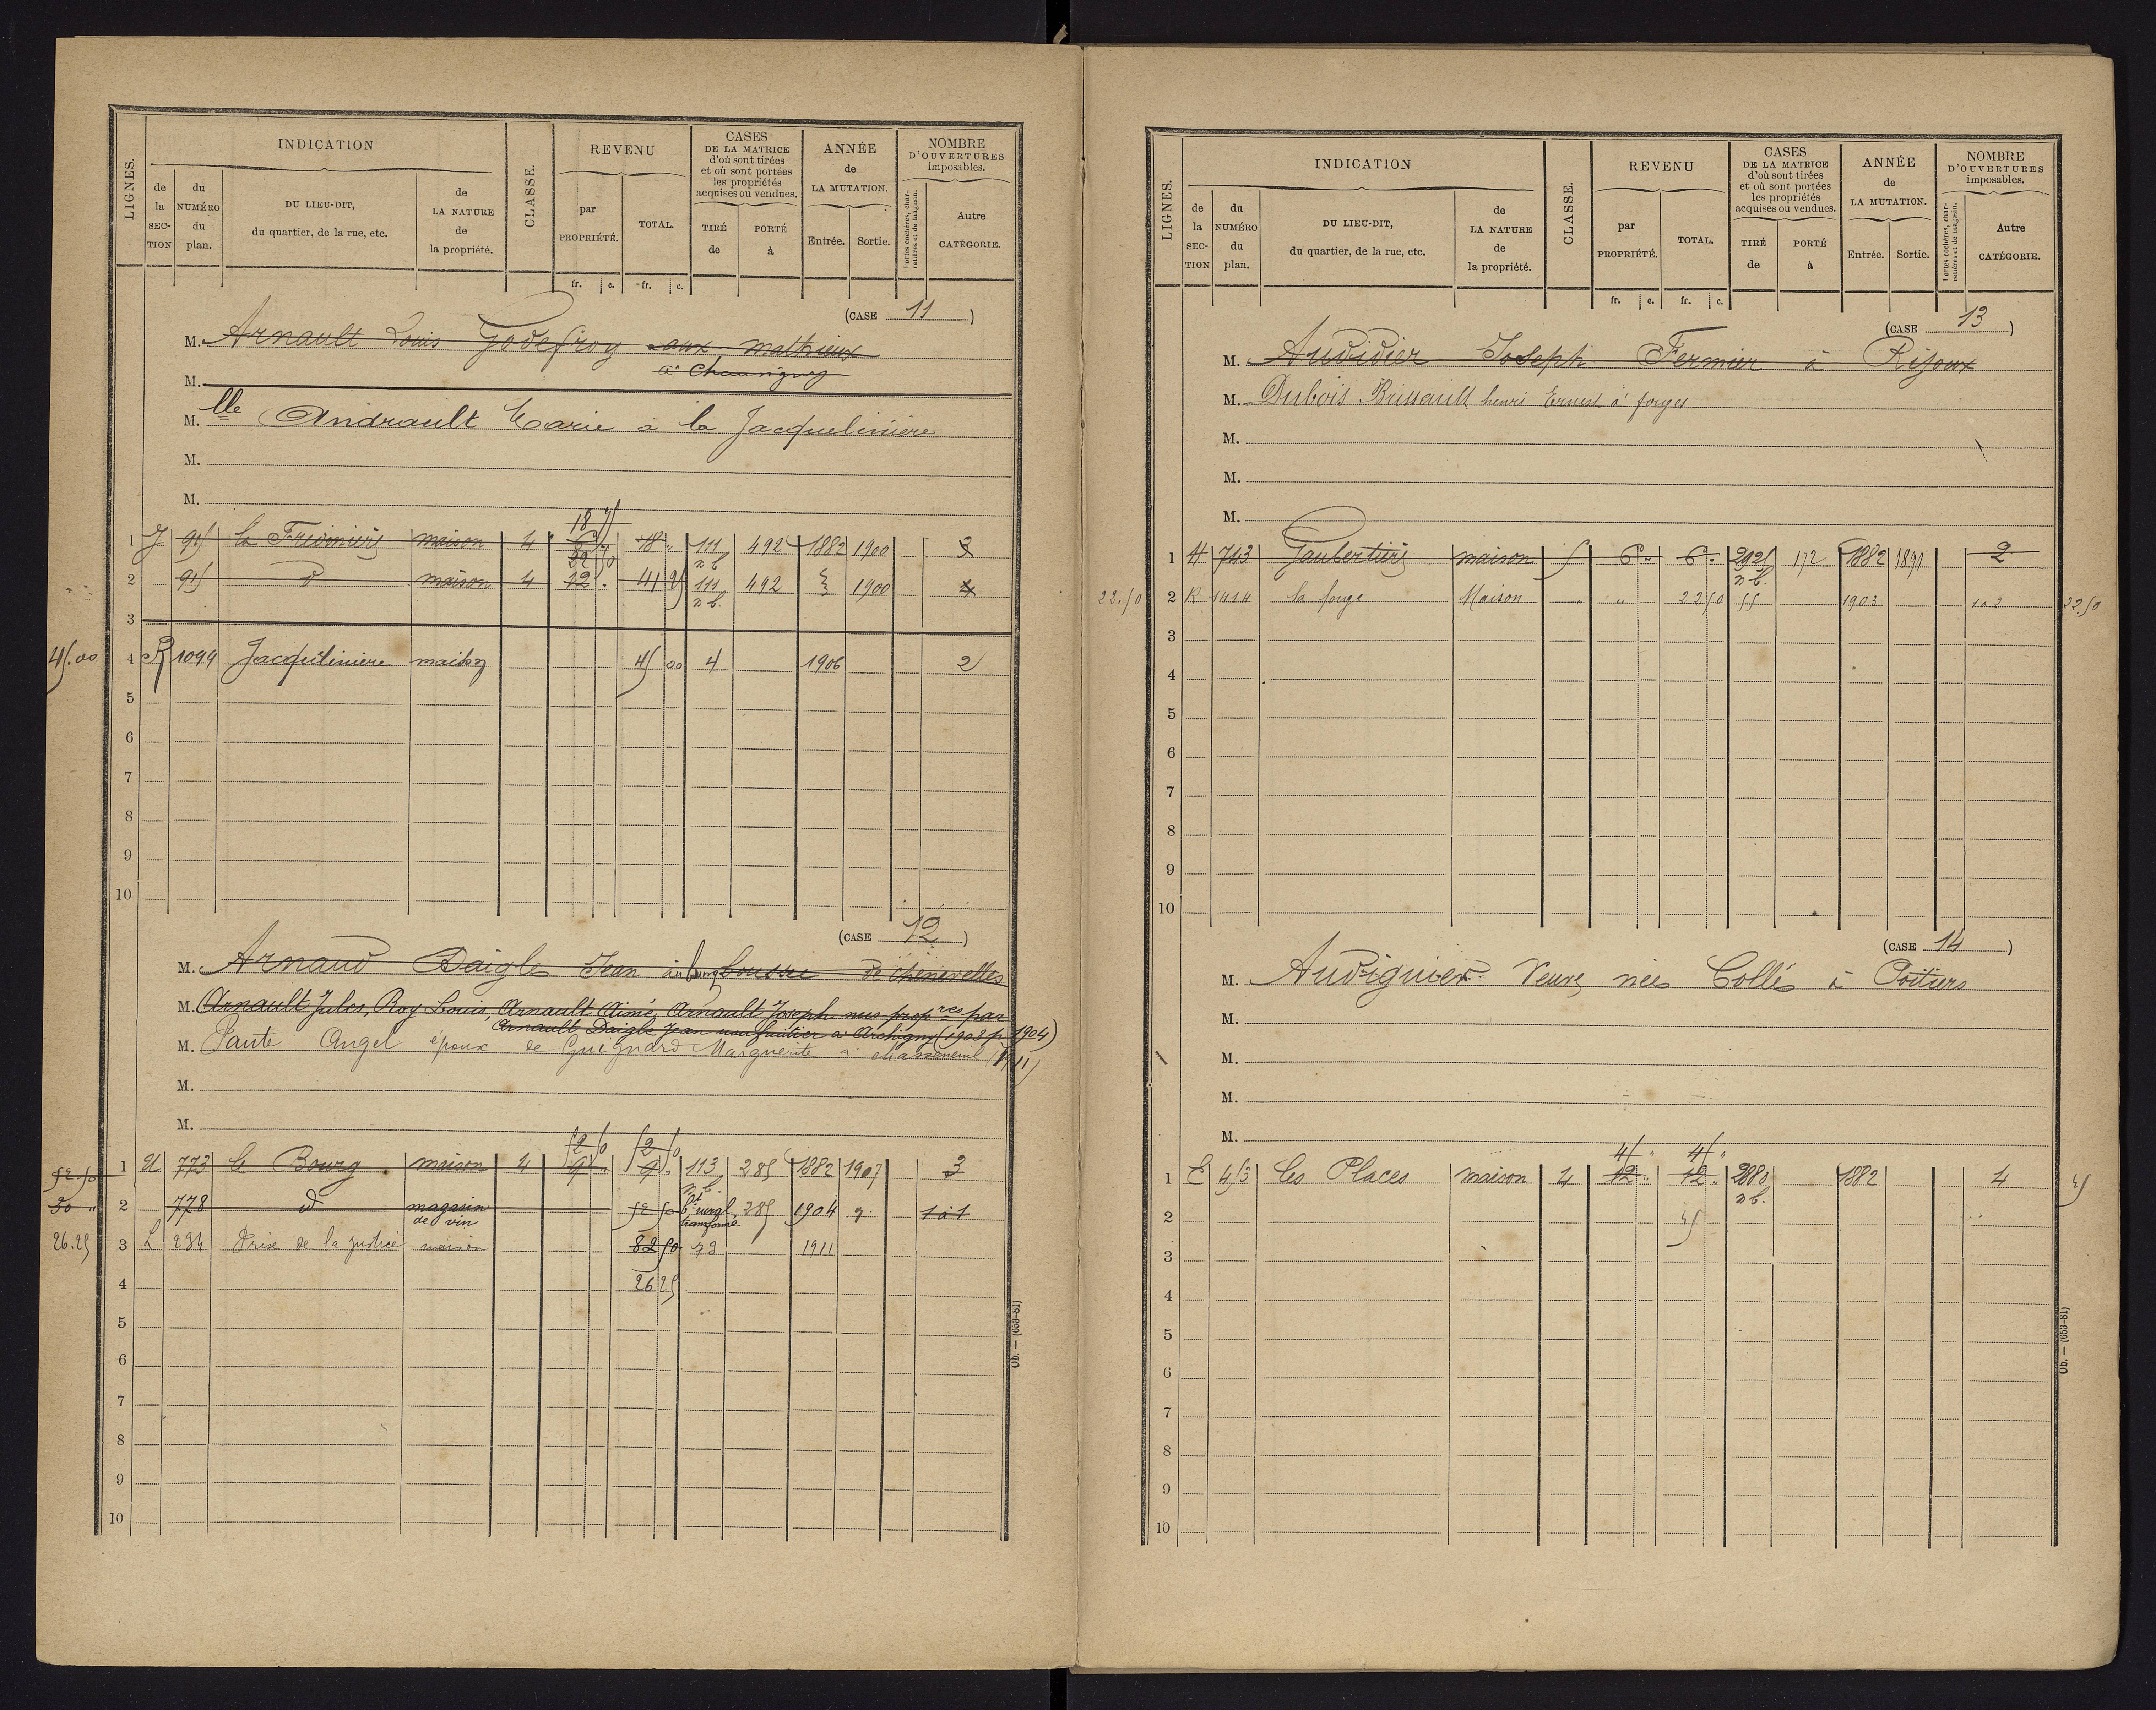 LIGNES.
INDICATION
de la SECTION
du NUMÉRO du plan.
DU LIEU-DIT, du quartier, de la rue, etc.
de LA NATURE de la propriété.
CLASSE.
REVENU
par PROPRIÉTÉ.
TOTAL.
fr. c. fr. c.
CASES DE LA MATRICE d'où sont tirées et où sont portées les propriétés acquises ou vendues.
TIRÉ de
PORTÉ à
ANNÉE de LA MUTATION.
Entrée. Sortie.
NOMBRE D'OUVERTURES imposables.
Portes cochères, charretières et de magasin.
Autre CATÉGORIE.
(CASE 11)
M. Arnault Louis Godefroy aux Mathieux
à Chauvigny
M.
M. lle Andrault Marie à la Jacquelinière
M.
M.
18
1 J 95 maison 4 18 " 111 492 1882 1900 3
n b
2 95 d° maison 4 12 " 41 25 111 492 1900 4
n b.
3
45.00 4 R 1094 Jacquelinière maison 45 00 4 1906 2
5
6
7
8
9
10
(CASE 12)
M. Arnaud Daigle Jean au bourg de chenevelles
M. Arnault Jules, Roy Louis, Arnault Aimé, Arnault Joseph nus-prop res par
Arnault Daigle Jean usufruitier à Archigny (1903 pr 1904)
M. Sante Angel époux de Guignard Marguerite à chasseneuil (1911)
M.
M.
52 50 52 50
52.50 1 U 773 le Bourg maison 4 9 " 9 " 113 285 1882 1907 3
n b
30 " 2 778 d° magasin de vin 52 50 285 1904 7 1 à 1
transformé
26.25 3 L 234 Prise de la justice maison 82 50 1911
4 26 25
5
6
7
8
9
10
Ob. — (653-81)
LIGNES.
INDICATION
de la SECTION
du NUMÉRO du plan.
DU LIEU-DIT, du quartier, de la rue, etc.
de LA NATURE de la propriété.
CLASSE.
REVENU
par PROPRIÉTÉ.
TOTAL.
fr. c. fr. c.
CASES DE LA MATRICE d'où sont tirées et où sont portées les propriétés acquises ou vendues.
TIRÉ de
PORTÉ à
ANNÉE de LA MUTATION.
Entrée. Sortie.
NOMBRE D'OUVERTURES imposables.
Portes cochères, charretières et de magasin.
Autre CATÉGORIE.
(CASE 13)
M. Audidier Joseph Fermier à Rijoux
M. Dubois Brissault henri Ernest à forges
M.
M.
M.
1 H 743 Jaubertière maison 5 6 " 6 " 2925 172 1882 1891 2
n b.
22.50 2 R 1414 la forge Maison " " 22 50 55 1903 22.50
3
4
5
6
7
8
9
10
(CASE 14)
M. Audignier Veuve née Collé à Poitiers
M.
M.
M.
M.
45 " 45 "
1 E 453 les Places maison 4 12 " 12 " 2880 1882 4 45
n b.
2 45
3
4
5
6
7
8
9
10
Ob. — (653-81)